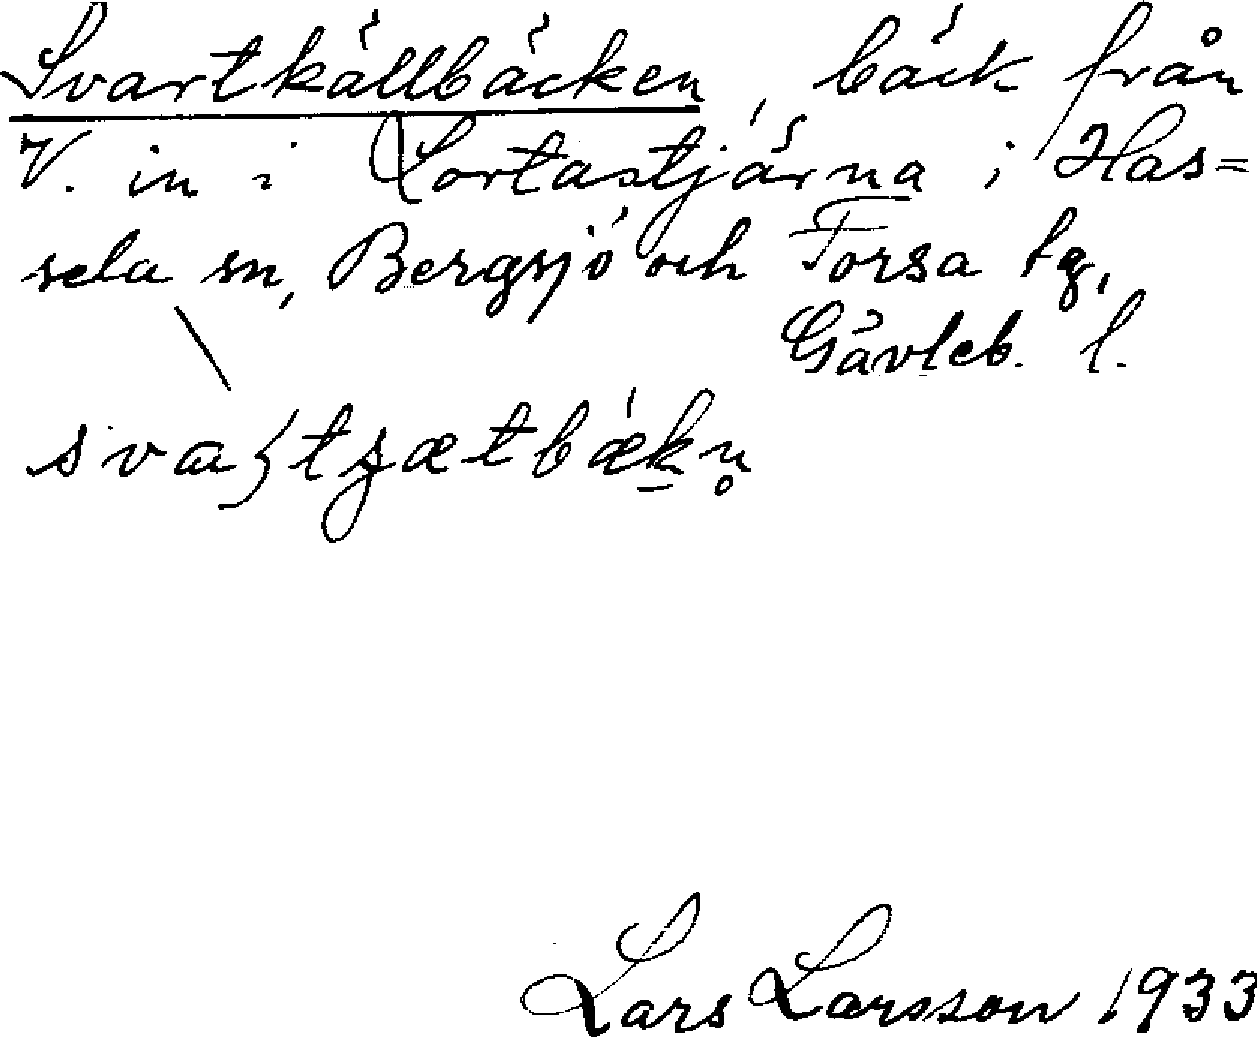 Svartkällbäcken, bäck från
V. in i Lortastjärna i Has=
sela sn, Bergsjö och Forsa tg,
Gävleb. l.
Lars Larsson 1933